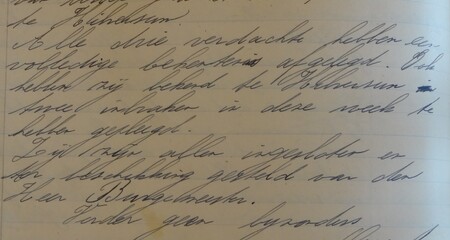 te Hilversum.
Alle drie verdachte hebben een
volledige bekentenis afgelegd. Ook
hebben zij bekend te Hilversum
twee inbraken in deze week te
hebben gepleegd.
Zij zijn allen ingesloten en
ter beschikking gesteld van den
Heer Burgemeester.
Verder geen byzonders